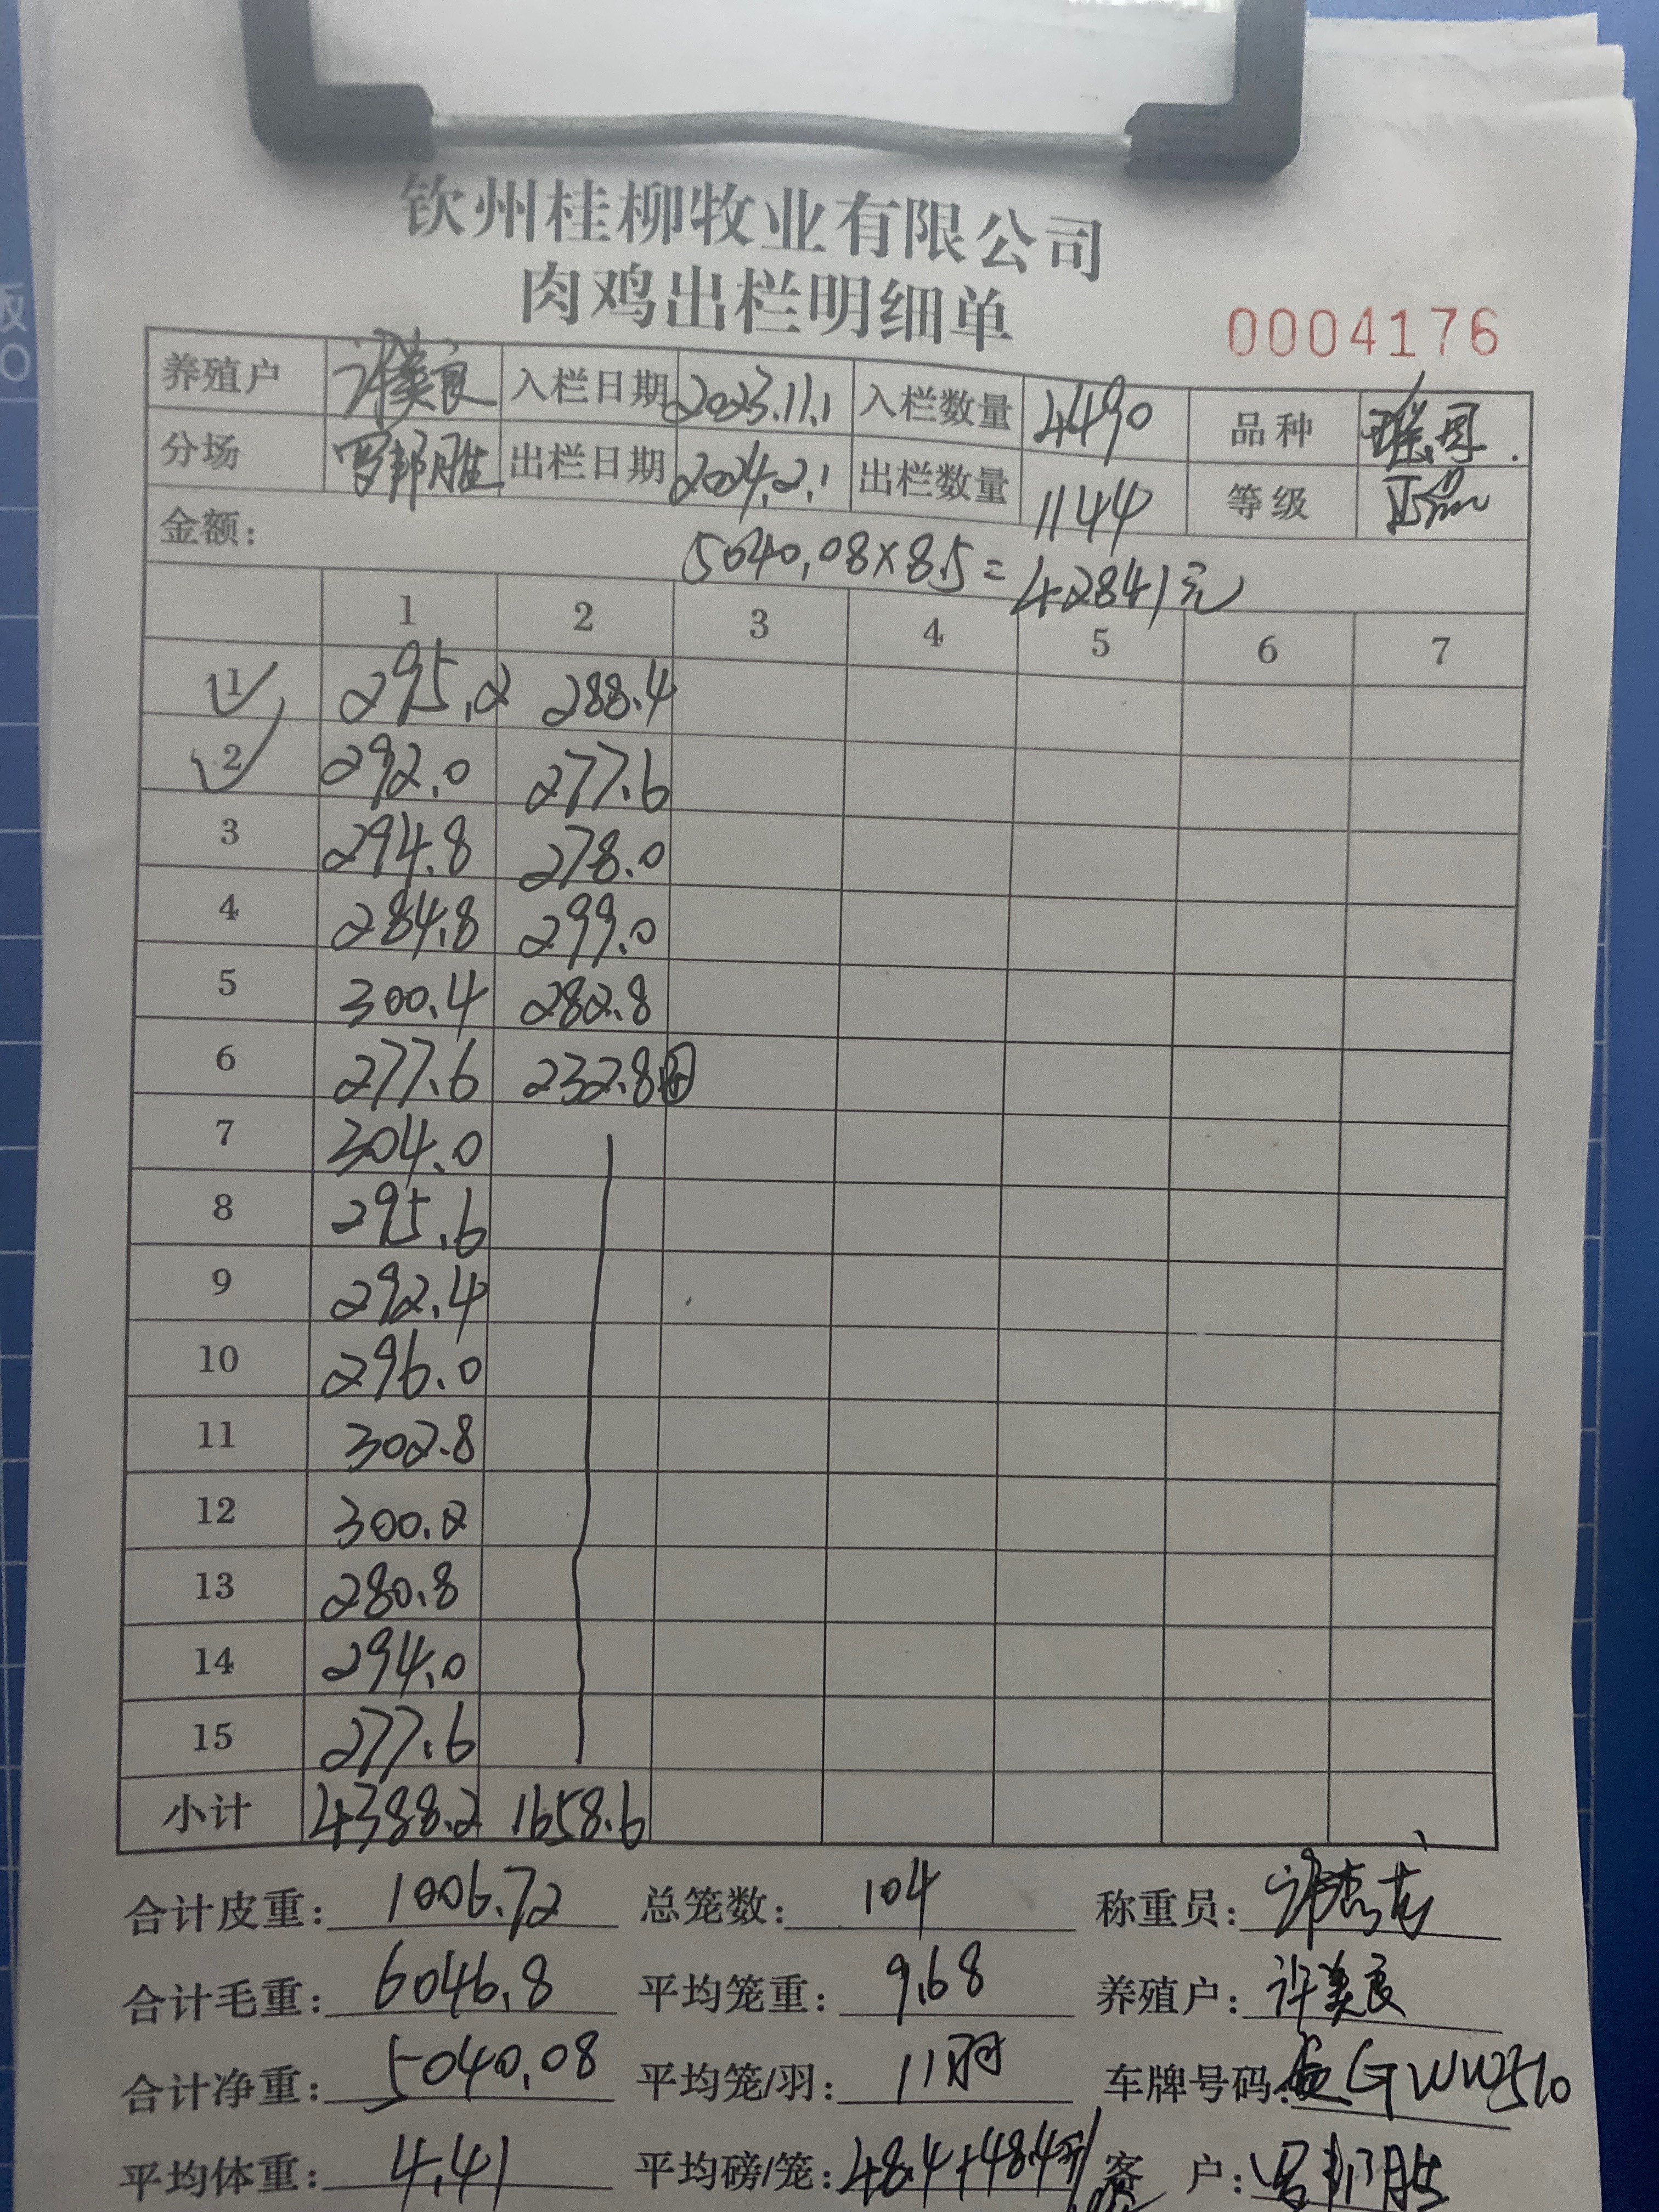 钦州桂柳牧业有限公司
肉鸡出栏明细单
0004176
养殖户 许美良 入栏日期 2023.11.1 入栏数量 4490 品种
分场 罗邦胜 出栏日期 2024.2.1 出栏数量 1144 等级
金额: 5040.08×8.5=42841元
1 2 3 4 5 6 7
1 295.2 288.4
2 292.0 277.6
3 294.8 278.0
4 284.8 299.0
5 300.4 282.8
6 277.6 232.8 ④
7 304.0
8 295.6
9 292.4
10 296.0
11 302.8
12 300.2
13 280.8
14 294.0
15 277.6
小计 4388.2 1658.6
合计皮重: 1006.72 总笼数: 104 称重员:
合计毛重: 6046.8 平均笼重: 9.68 养殖户: 许美良
合计净重: 5040.08 平均笼/羽: 11羽 车牌号码: GWW510
平均体重: 4.41 平均磅/笼: 48.4+48.4 客 户: 罗邦胜